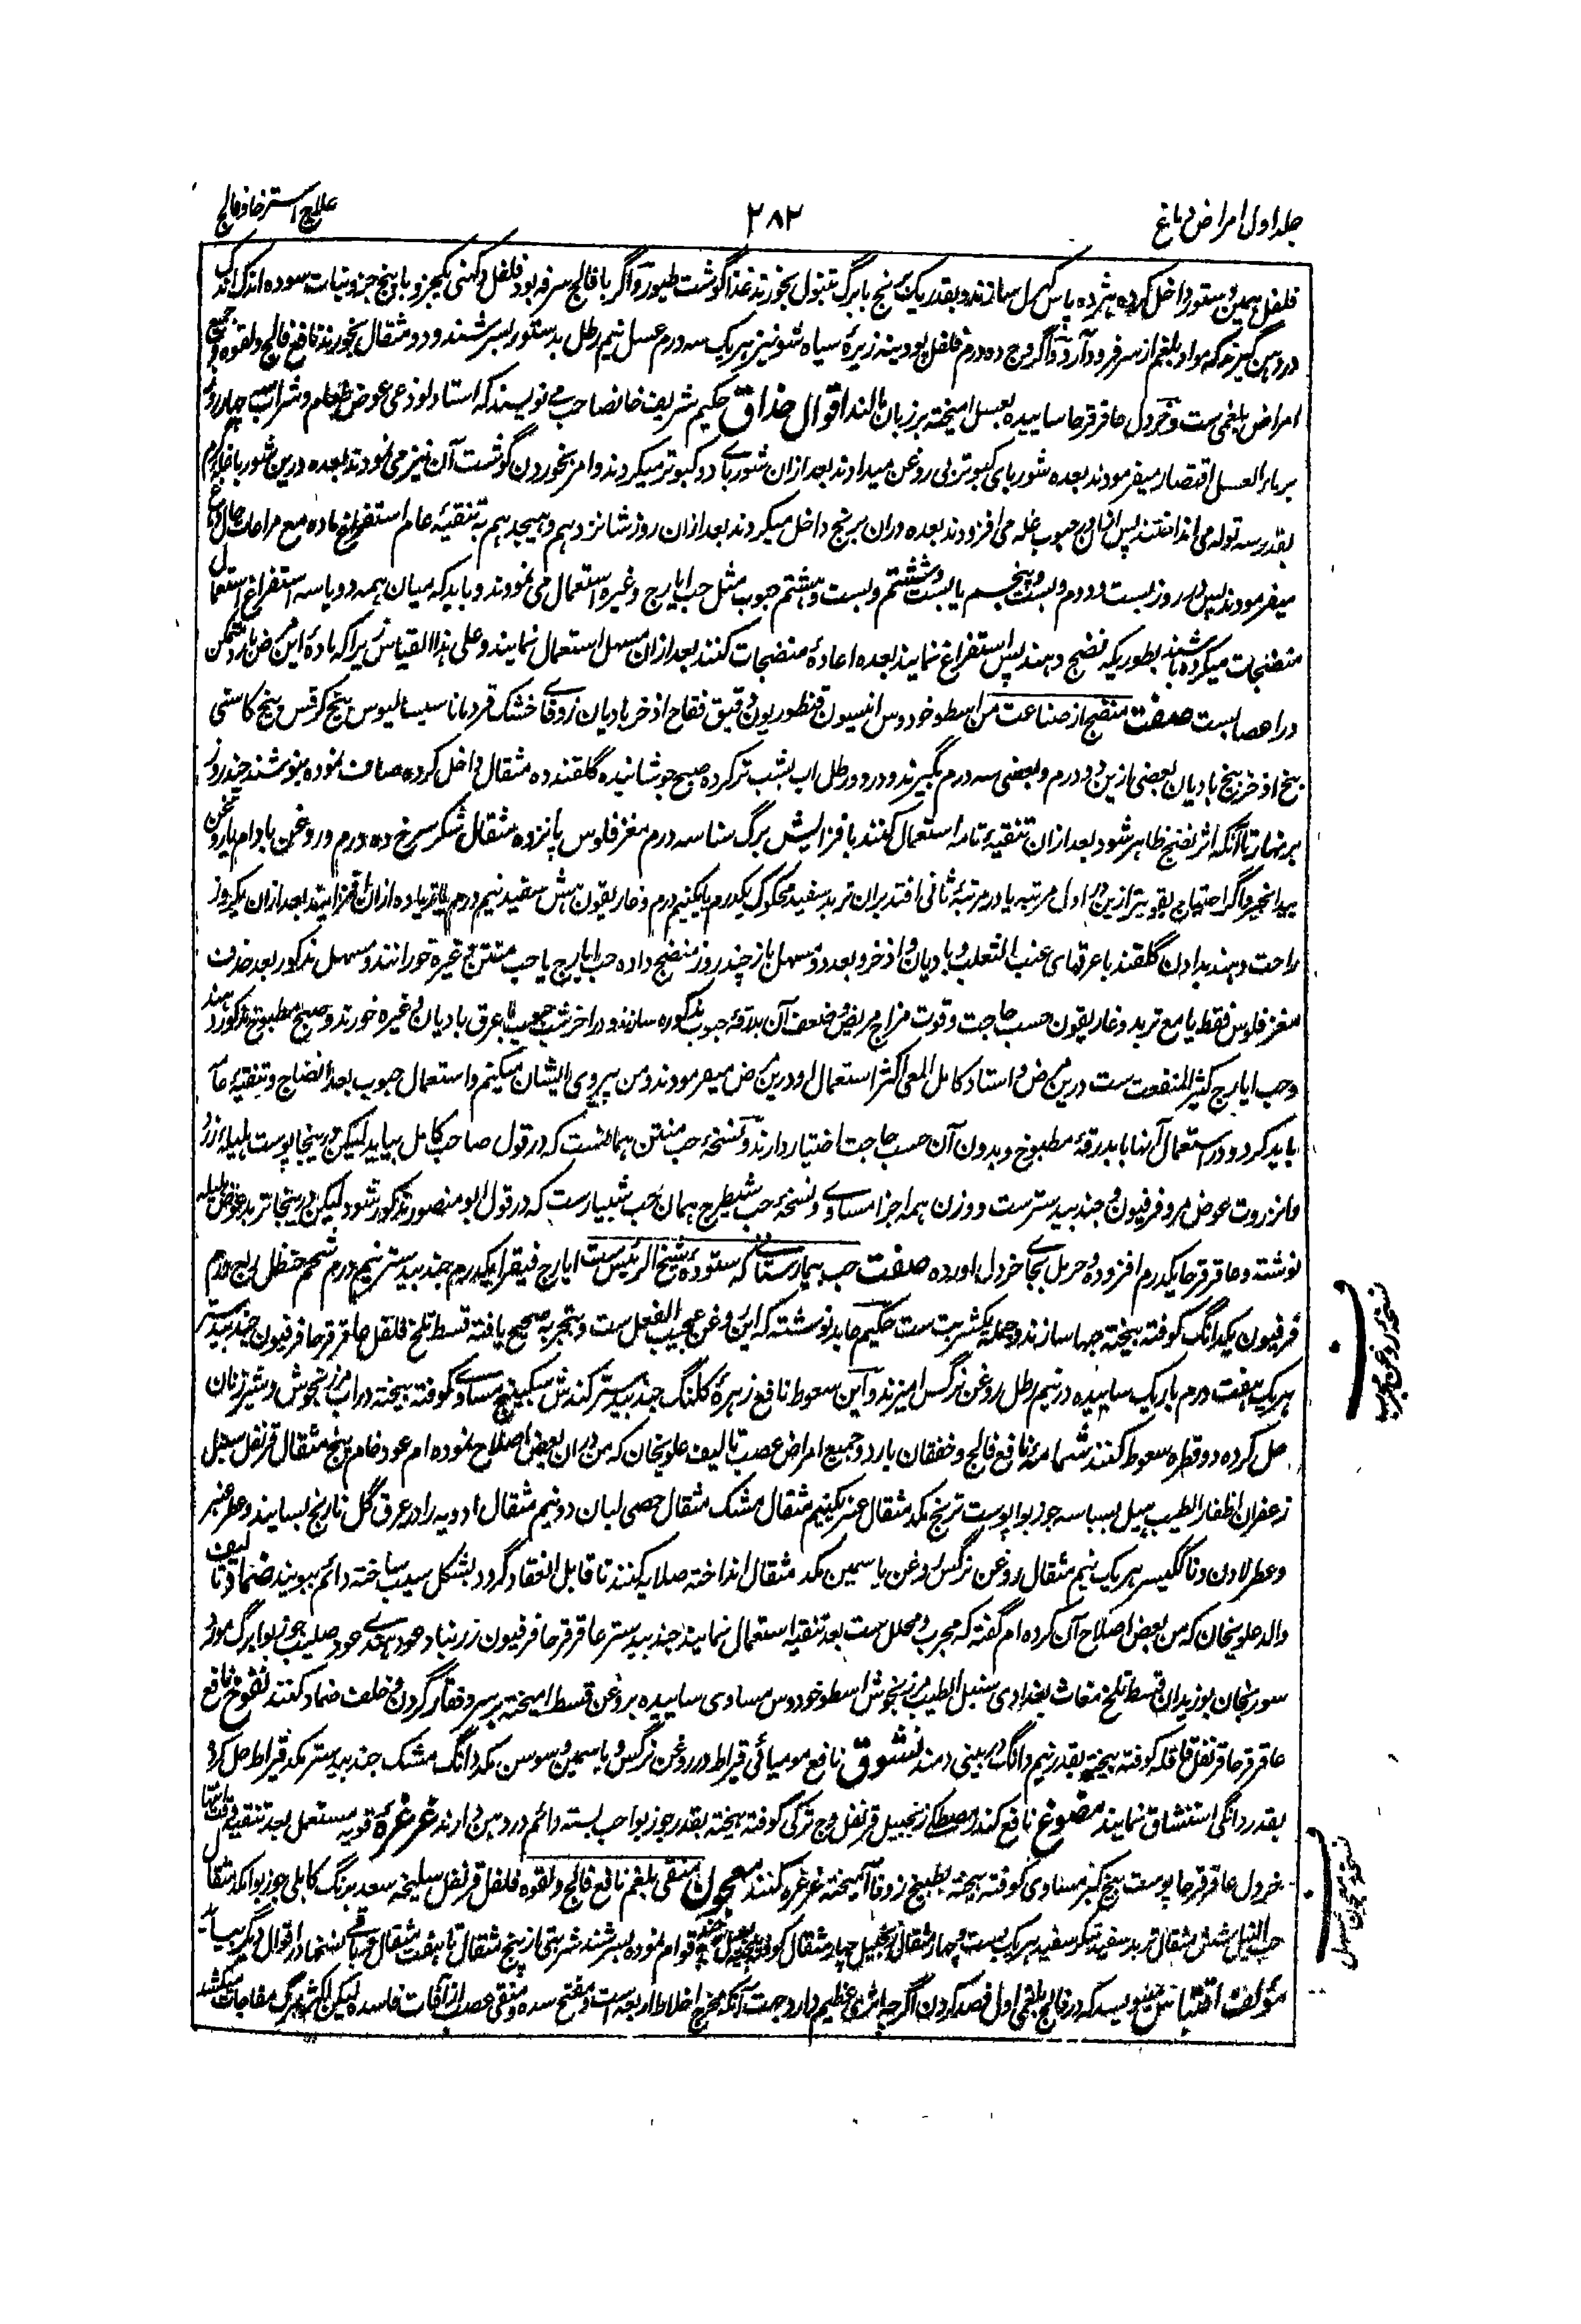 جلد اول امراض دماغ
۲۸۲
علاج استرخا و فالج
فلفل بهمین دستور داخل کرده شیرده پاس کهرل سازند و بقدر یک برنج با برگ تنبول بخورند غذا گوشت طیور و اگر با فالج سرفه بود فلفل دکهنی یکجزو با پنج جزو نبات سوده اندک اندک
در دهن گیرند که مواد بلغم از سر فرود آرد و اگر وج ده درم فلفل پودینه زیرهٔ سیاه شونیز هر یک سه درم عسل نیم رطل بدستور بسرشند و دو مثقال بخورند نافع فالج و لقوه و جمیع
امراض بلغمی ست و خردل عاقرقرحا ساییده بعسل آمیخته بر زبان مالند اقوال حذاق حکیم شریف خانصاحب می نویسند که استاد لوذعی عوض طعام و شراب چهار روز
بر ماء العسل اقتصار میفرمودند بعده شوربای کبوتر بی روغن میدادند بعد ازان شوربای دو کبوتر میکردند و امر بخوردن گوشت آن نیز می نمودند بعده درین شوربا
بقدر سه توله می انداختند پس حبوب غله می افزودند بعده دران برنج داخل میکردند بعد ازان روز شانزدهم و هیجدهم به تنقیهٔ عام استفراغ ماده مع مراعات حال دماغ
میفرمودند پس در روز بست و دوم و بست و پنجم یا بست و ششم و بست و هشتم حبوب مثل حب ایارج وغیره استعمال می نمودند و باید که میان همه دو یا سه استفراغ استعمال
منضجات میکرده باشند بطوریکه نضج دهند پس استفراغ نمایند بعده اعادهٔ منضجات کنند بعد ازان مسهل استعمال نمایند و علی هذا القیاس زیرا که مادهٔ این مرض بارد متمکن
در اعصاب ست صفت منضج از صناعت من اسطوخودوس انیسون قنطوریون دقیق فقاح اذخر بادیان زوفای خشک قردمانا سیسالیوس بیخ کرفس بیخ کاسنی
بیخ اذخر بیخ بادیان بعضی ازین دو درم و بعضی سه درم بگیرند و در دو رطل آب بشب تر کرده صبح جوشانیده گلقند ده مثقال داخل کرده صاف نموده بنوشند چند روز
بر نهار تا آنکه اثر نضج ظاهر شود بعد ازان تنقیهٔ تامه استعمال کنند با فزایش برگ سنا سه درم مغز فلوس پانزده مثقال شکر سرخ ده درم و روغن بادام یا روغن
بیدانجیر و اگر احتیاج بقوی تر ازین در اول مرتبه یا در مرتبهٔ ثانی افتد بران تربد سفید محکوک یکدرم یا یکنیم درم و غاریقون هش سفید نیم درم یا زیاده ازان افزایند بعد ازان یکروز
راحت دهند بدادن گلقند با عرقهای عنب الثعلب و بادیان و اذخر و بعد دو مسهل باز چند روز منضج داده حب ایارج یا حب منتن وغیره خورانند و مسهل مذکور بعد حذف
مغز فلوس فقط یا مع تربد و غاریقون حسب حاجت و قوت مزاج مریض و ضعف آن بدرقهٔ حبوب مذکوره سازند و در آخر شب حبوب با عرق بادیان وغیره خورند و صبح مطبوخ مذکور دهند
و حب ایارج کثیر المنفعت ست درین مرض و استاد کامل المعی اکثر استعمال او درین مرض میفرمودند و من پیروی ایشان میکنم و استعمال حبوب بعد انضاج و تنقیهٔ عام
باید کرد و در استعمال آنها با بدرقهٔ مطبوخ و بدون آن حسب حاجت اختیار دارند و نسخهٔ حب منتن همانست که در قول صاحب کامل بیاید لیکن درینجا پوست هلیلهٔ زرد
و انزروت عوض مر و فرفیون و جندبیدستر ست و وزن همه اجزا مساوی و نسخهٔ حب شیطرج همان حب شبیار ست که در قول ابو منصور مذکور شود لیکن درینجا تربد عوض هلیله
نوشته و عاقرقرحا یکدرم افزوده و حرمل بجای خردل آورده صفت حب بیمارستانی که ستودهٔ شیخ الرئیس ست ایارج فیقرا یکدرم جندبیدستر نیم درم شحم حنظل ربع درم
فرفیون یکدانگ کوفته بیخته حبها سازند و جمله یکشربت ست حکیم عابد نوشته که این روغن عجیب الفعل ست و بتجربهٔ صحیح یافته قسط تلخ فلفل عاقرقرحا فرفیون جندبیدستر
هر یک هفت درم باریک ساییده در نیم رطل روغن نرگس آمیزند و این سعوط نافع زهرهٔ کلنگ جندبیدستر کندش سکبینج مساوی کوفته بیخته در آب مرزنجوش و شیر زنان
حل کرده دو قطره سعوط کنند شمامه نافع فالج و خفقان بارد و جمیع امراض عصب تالیف علویخان که من دران بعض اصلاح نموده ام عود خام پنج مثقال قرنفل سنبل
زعفران اظفار الطیب هیل بسباسه جوزبوا پوست ترنج یکمثقال عنبر یکنیم مثقال مشک مثقال حصی لبان دو نیم مثقال ادویه را در عرق گل نارنج بسایند و عطر عنبر
و عطر لادن و ناگکیسر هر یک نیم مثقال روغن نرگس روغن یاسمین یکمثقال انداخته صلایه کنند تا قابل انعقاد گردد بشکل سیب ساخته دائم ببویند ضماد تالیف
والد علویخان که من بعض اصلاح آن کرده ام گفته که مجرب و محلل ست بعد تنقیه استعمال نمایند جندبیدستر عاقرقرحا فرفیون زرنباد عود هندی عود صلیب جوزبوا برگ مورد
سورنجان بوزیدان قسط تلخ مغاث بغدادی سنبل الطیب مرزنجوش اسطوخودوس مساوی ساییده بروغن قسط آمیخته بر سر و فقار گردن و خلف ضماد کنند نفوخ نافع
عاقرقرحا قرنفل قاقله کوفته بیخته بقدر نیم دانگ در بینی دمند نشوق نافع مومیائی قیراط در روغن نرگس و یاسمین و سوسن یکدانگ مشک جندبیدستر یکقیراط حل کرده
بقدر دانگی استنشاق نمایند مضوغ نافع کندر مصطکی زنجبیل قرنفل وج ترکی کوفته بیخته بقدر جوزبوا حب بسته دائم در دهن دارند غرغرهٔ قویه مستعمل بعد تنقیه وقت انتها
خردل عاقرقرحا پوست بیخ کبر مساوی کوفته بیخته بطبیخ زوفا آمیخته غرغره کنند معجون منقی بلغم نافع فالج و لقوه فلفل قرنفل سلیخه سعد برنگ کابلی جوزبوا یکمثقال
حب النیل شش مثقال تربد سفید شکر سفید هر یک بست و چهار مثقال زنجبیل چهار مثقال کوفته بیخته بعسل قوام نموده بسرشند شربتی از پنج مثقال تا هفت مثقال و باقی نسخها در اقوال دیگر بیاید
مؤلف اقتباس مینویسد که در فالج بلغمی اول فصد کردن اگرچه اثری عظیم دارد بجهت آنکه مخرج اخلاط اربعه است و مفتح سده و منقی عصب از آفات فاسده لیکن اکثر بمرگ مفاجات میکشد
نسخهٔ روغن مجرب
نسخهٔ معجون مسهل